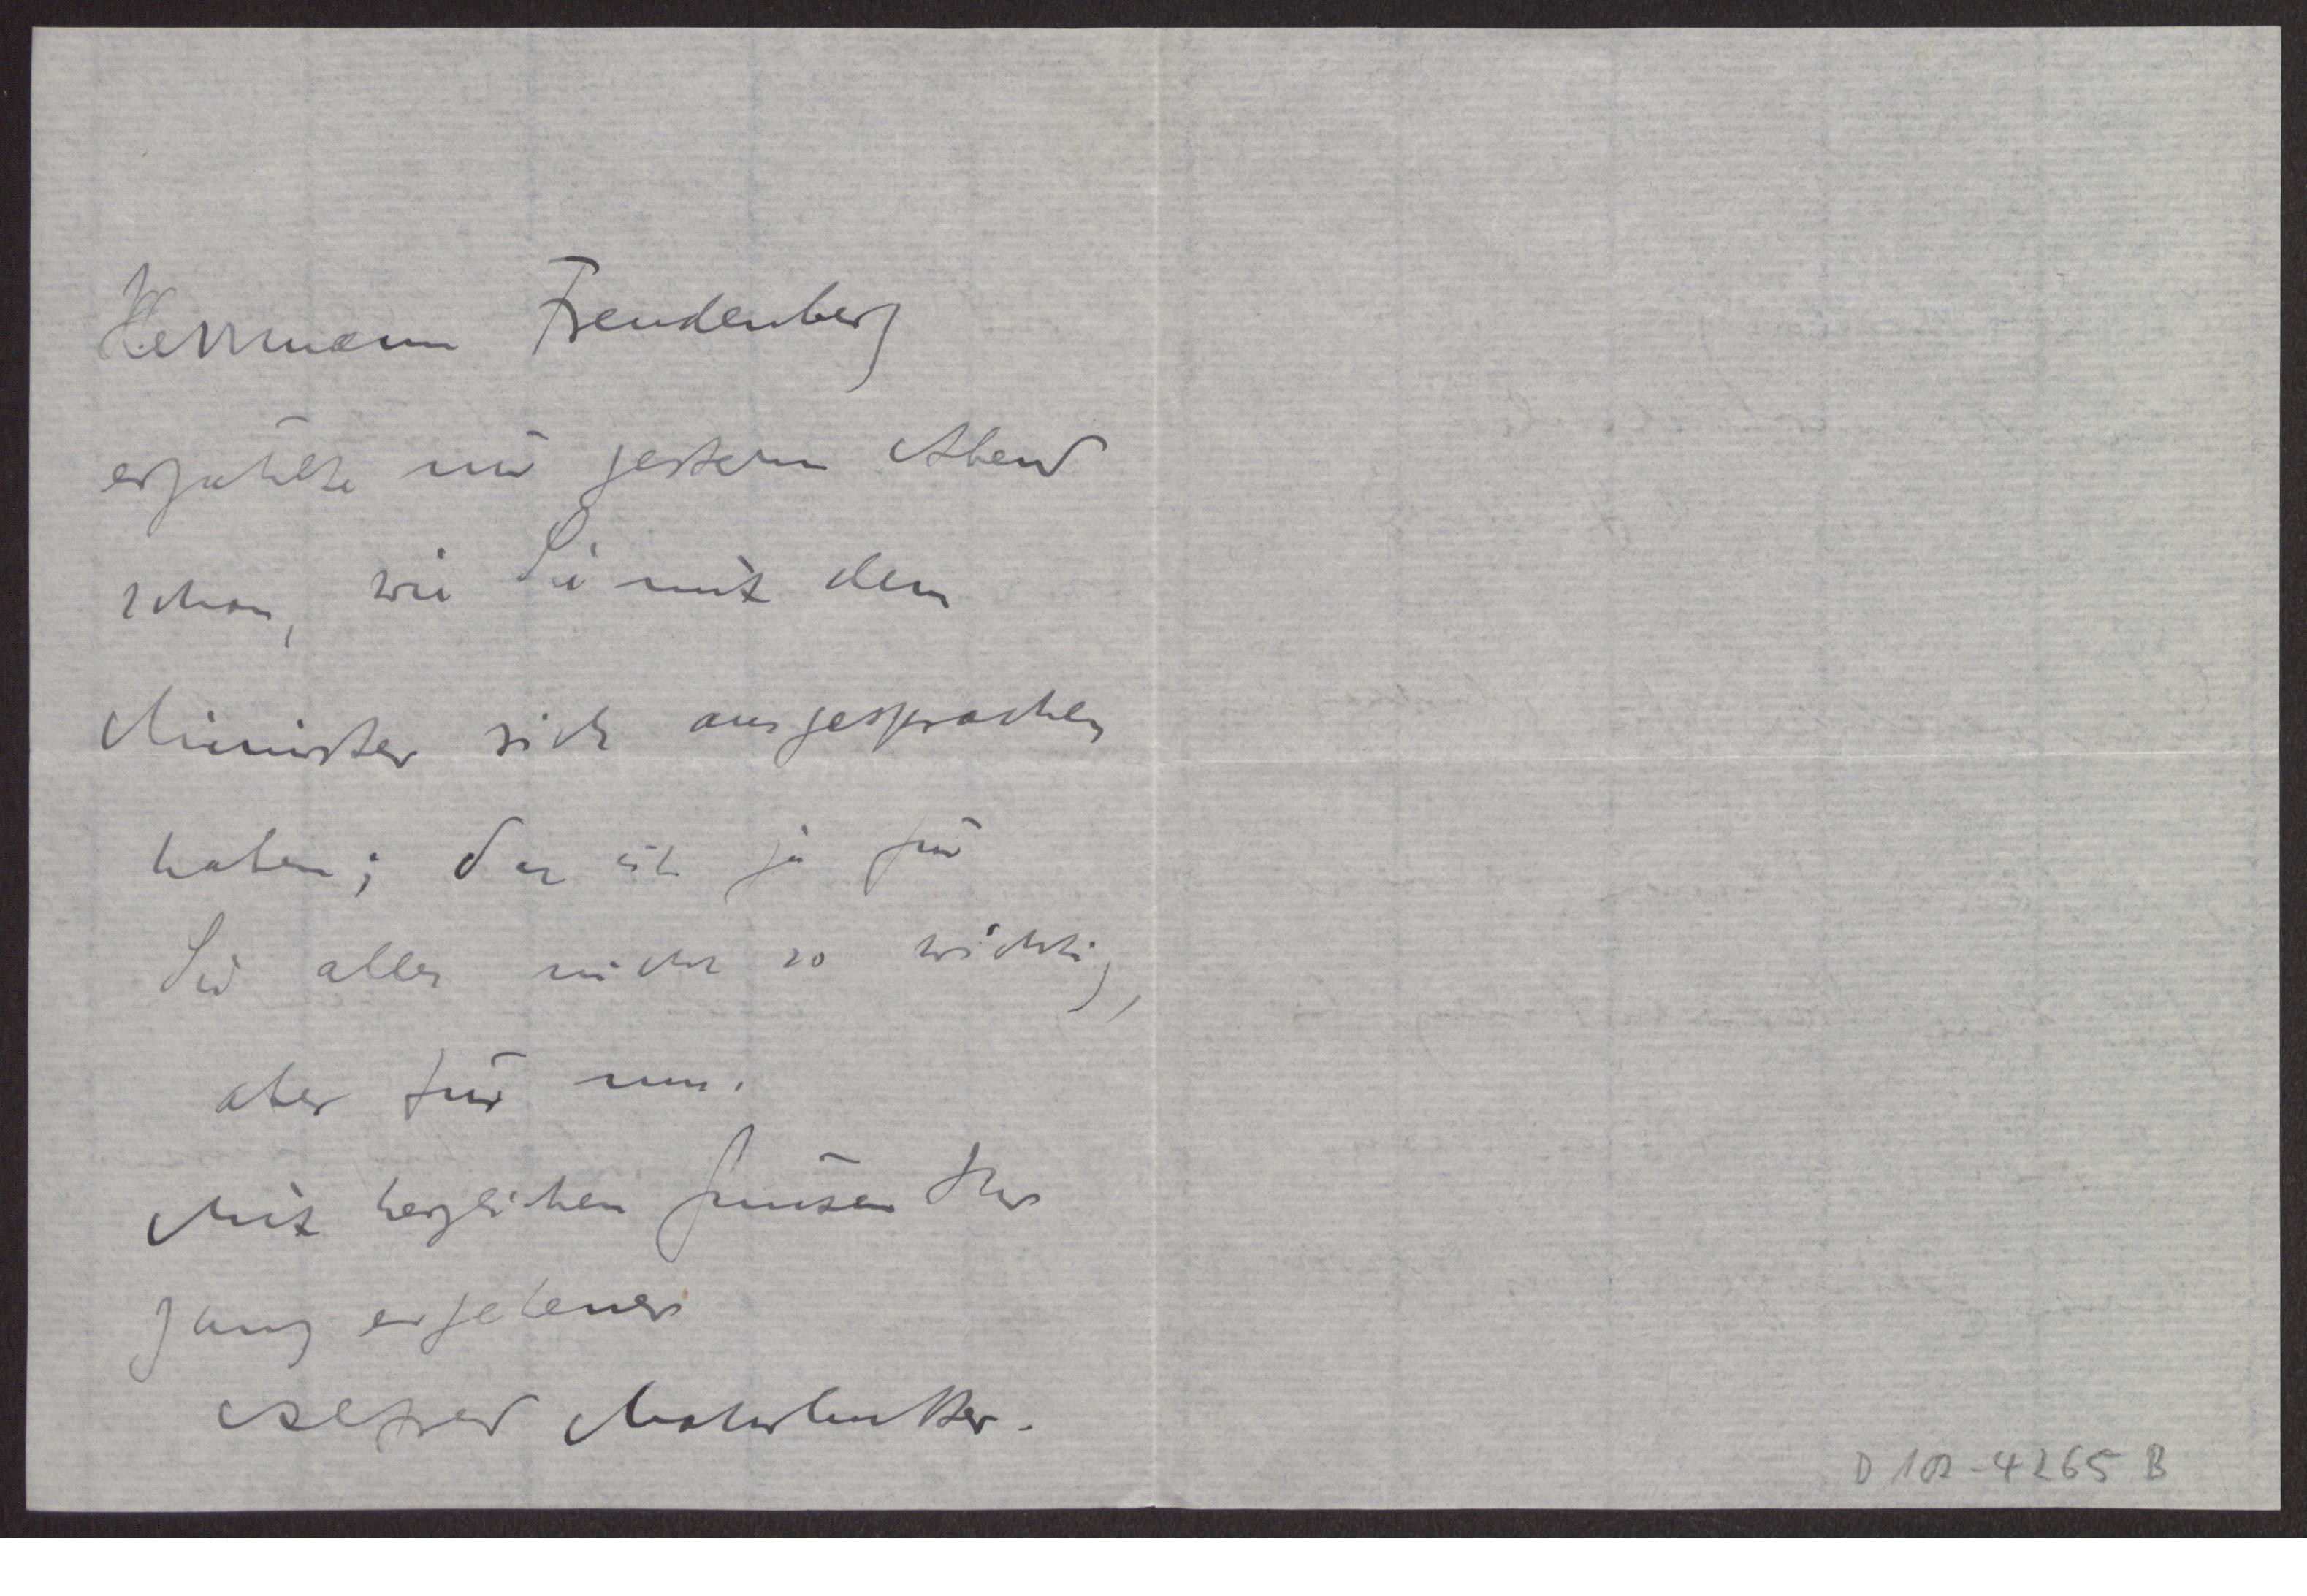 Herrmann Freudenberg
erzählte mir gestern Abend
schon, wie Sie mit dem
Minister sich ausgesprochen
haben; das ist ja für
Sie alles nicht so wichtig,
aber für uns.
Mit herzlichen Grüssen Ihr
ganz ergebener
Alfred Mohrbutter.
D 102-4265 B